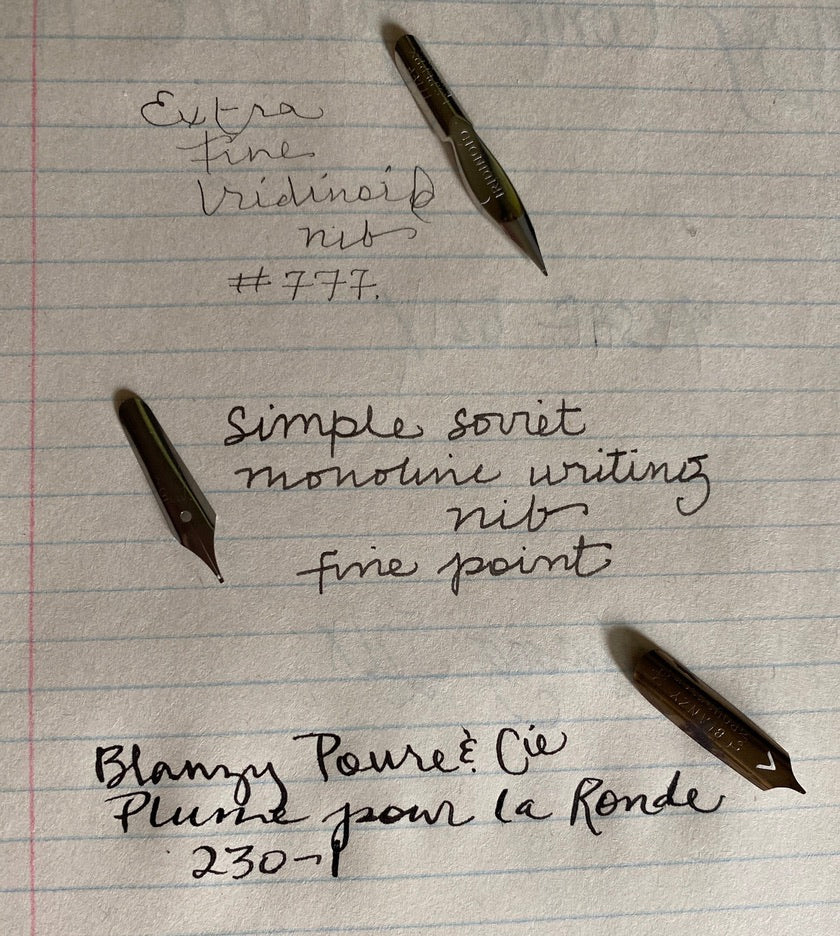 Extra
fine
Iridinoid
nib
#777.
IRIDINOID
simple soviet
monoline writing
nib
fine point
BLANZY
Blanzy Poure & Cie
Plume pour la Ronde
230-1